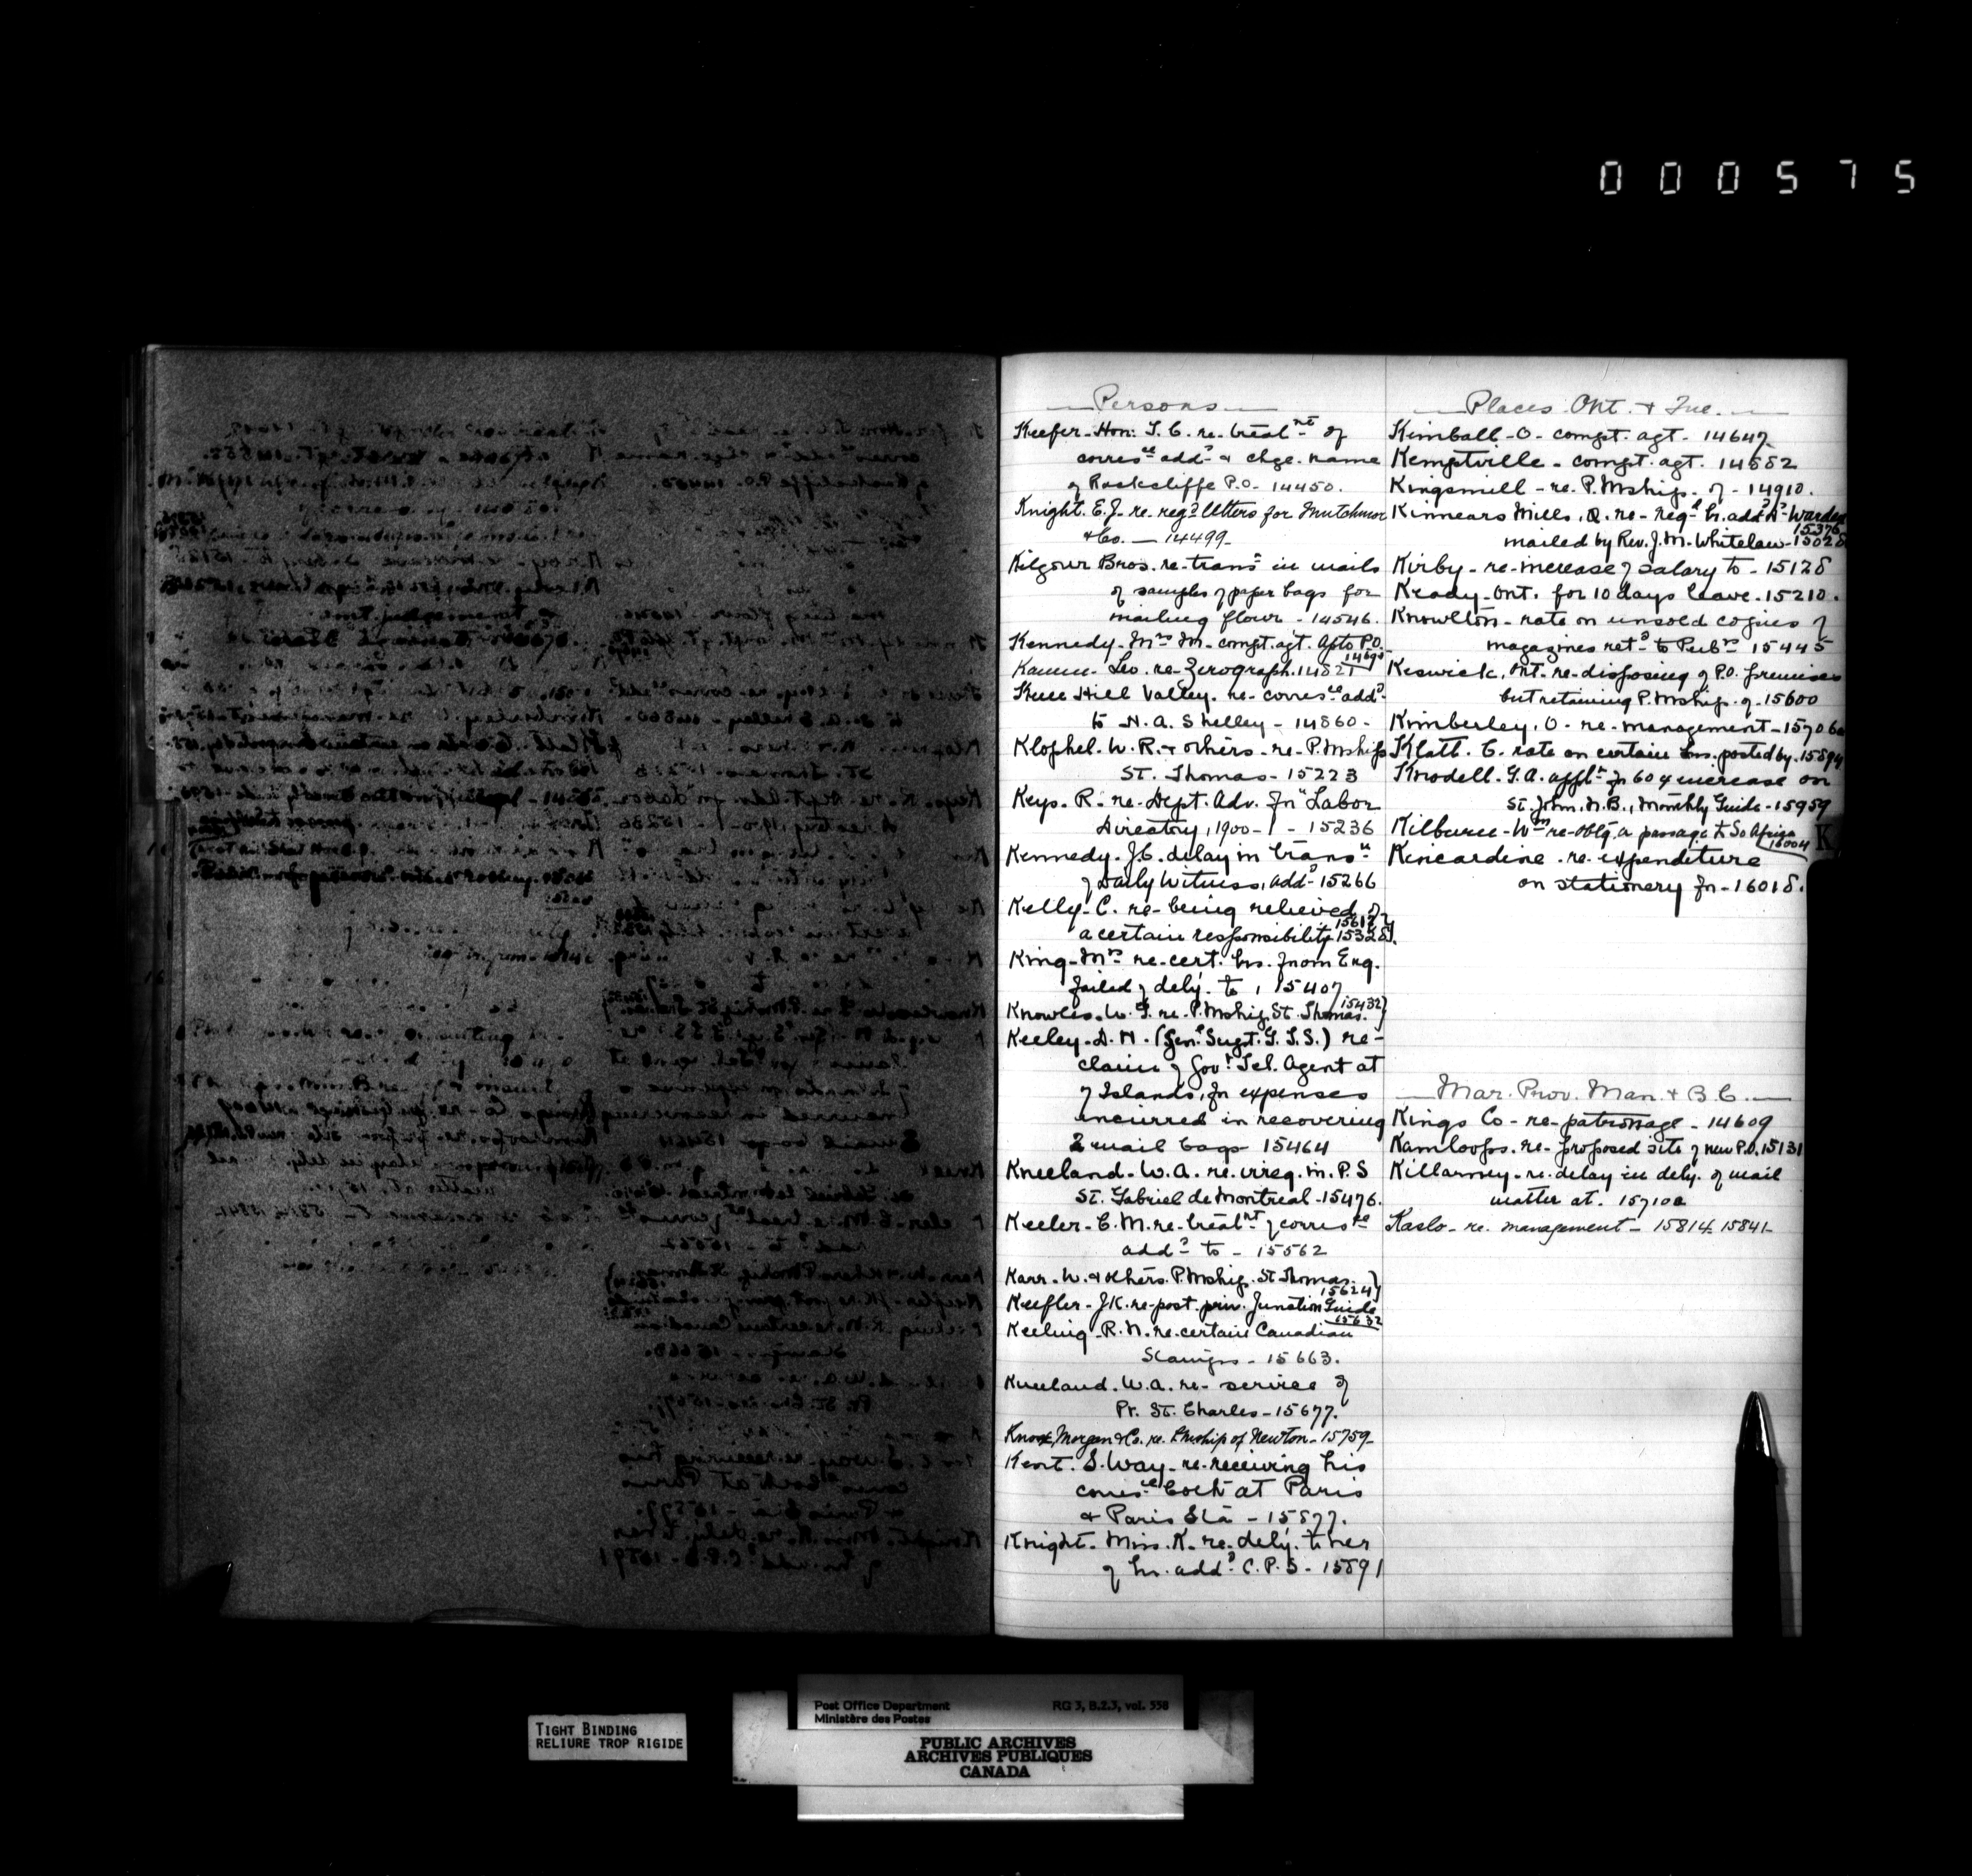 000575
Persons
Keefer. Hon. T. C. re. treatnt of
corresce addd & chge. name
of Rockcliffe P.O. 14450.
Knight. E.J. re. regd letters for Mutchmor
& Co. — 14499-
Kilgour Bros. re-transn in mails
of samples of paper bags for
mailing flour - 14546.
Kennedy. Mrs M. compt. agt. Apto P.O.
14690
Leo. re. Zerograph. 14821
Knee Hill Valley. re- corresce addd
to N. A. Shelley - 14860-
Klophel. W. R. & others - re- P.Mship
St. Thomas - 15223
Keys. R. re- Dept. Adv. in "Labor
Directory, 1900-1 - 15236
Kennedy. J.C. delay in transn
of Daily Witness, addd 15266
Kelly. C. re- being relieved of
15617
a certain responsibility 15328
King. Mrs re- cert. lrs. from Eng.
failed of dely. to, 15407
15432
Knowles. W. J. re. P.Mship St. Thomas.
Keeley. D. H. (Genl Supt. G.T.S.) re-
claim of Govt Tel. Agent at
of Islands, for expenses
incurred in recovering
2 mail bags 15464
Kneeland. W.A. re. irreg. in. P.S
St. Gabriel de Montreal - 15476.
Keeler. C. M. re. treatnt of corresce
addd to - 15562
Karr. W. & others. P.Mship. St Thomas.
15624
Keefler. J K. re- post. priv. Junction Guide
15632
Keeling. R. N. re. certain Canadian
Stamps - 15663.
Kneeland. W.A. re- service of
Pt. St. Charles - 15677.
Knox, Morgan & Co. re. Lruship of Newton - 15759-
Kent. S. Way - re- receiving his
corresce both at Paris
& Paris Sta - 15877.
Knight. Miss. K. re. dely. to her
of lr. addd C.P.S - 15891
Places Ont. & Que.
Kimball - O - compt. agt - 14647
Kemptville - compt. agt. 14882
Kingsmill - re. P.Mship. of - 14910.
Kinnears Mills, Q. re- Regd lr. addd A. Warden
15376
mailed by Rev. J. M. Whitelaw - 15028
Kirby - re- increase of salary to - 15128
Keady - Ont. for 10 days leave. 15210.
Knowlton - rate on unsold copies of
magazines retd to Pubrs 15445
Keswick, Ont - re- disposing of P.O. premises
but retaining P.Mship. of - 15600
Kimberley, O - re- management - 15706
Klatt. C. rate on certain lrs. posted by. 15894
Knodell. G.A. appln for 60 % increase on
St. John. N.B., Monthly Guide - 15959
Kilburn - Wm re- oblg. a passage to So Africa
16004
K
Kincardine - re- expenditure
on stationery for - 16018.
Mar. Prov. Man. & B.C.
Kings Co - re- patronage - 14609
Kamloops. re- proposed site of new P.O. 15131
Killarney - re. delay in dely. of mail
matter at. 15710a
Kaslo - re. management - 15814. 15841-
TIGHT BINDING
RELIURE TROP RIGIDE
Post Office Department RG 3, B.2.3, vol. 558
Ministère des Postes
PUBLIC ARCHIVES
ARCHIVES PUBLIQUES
CANADA